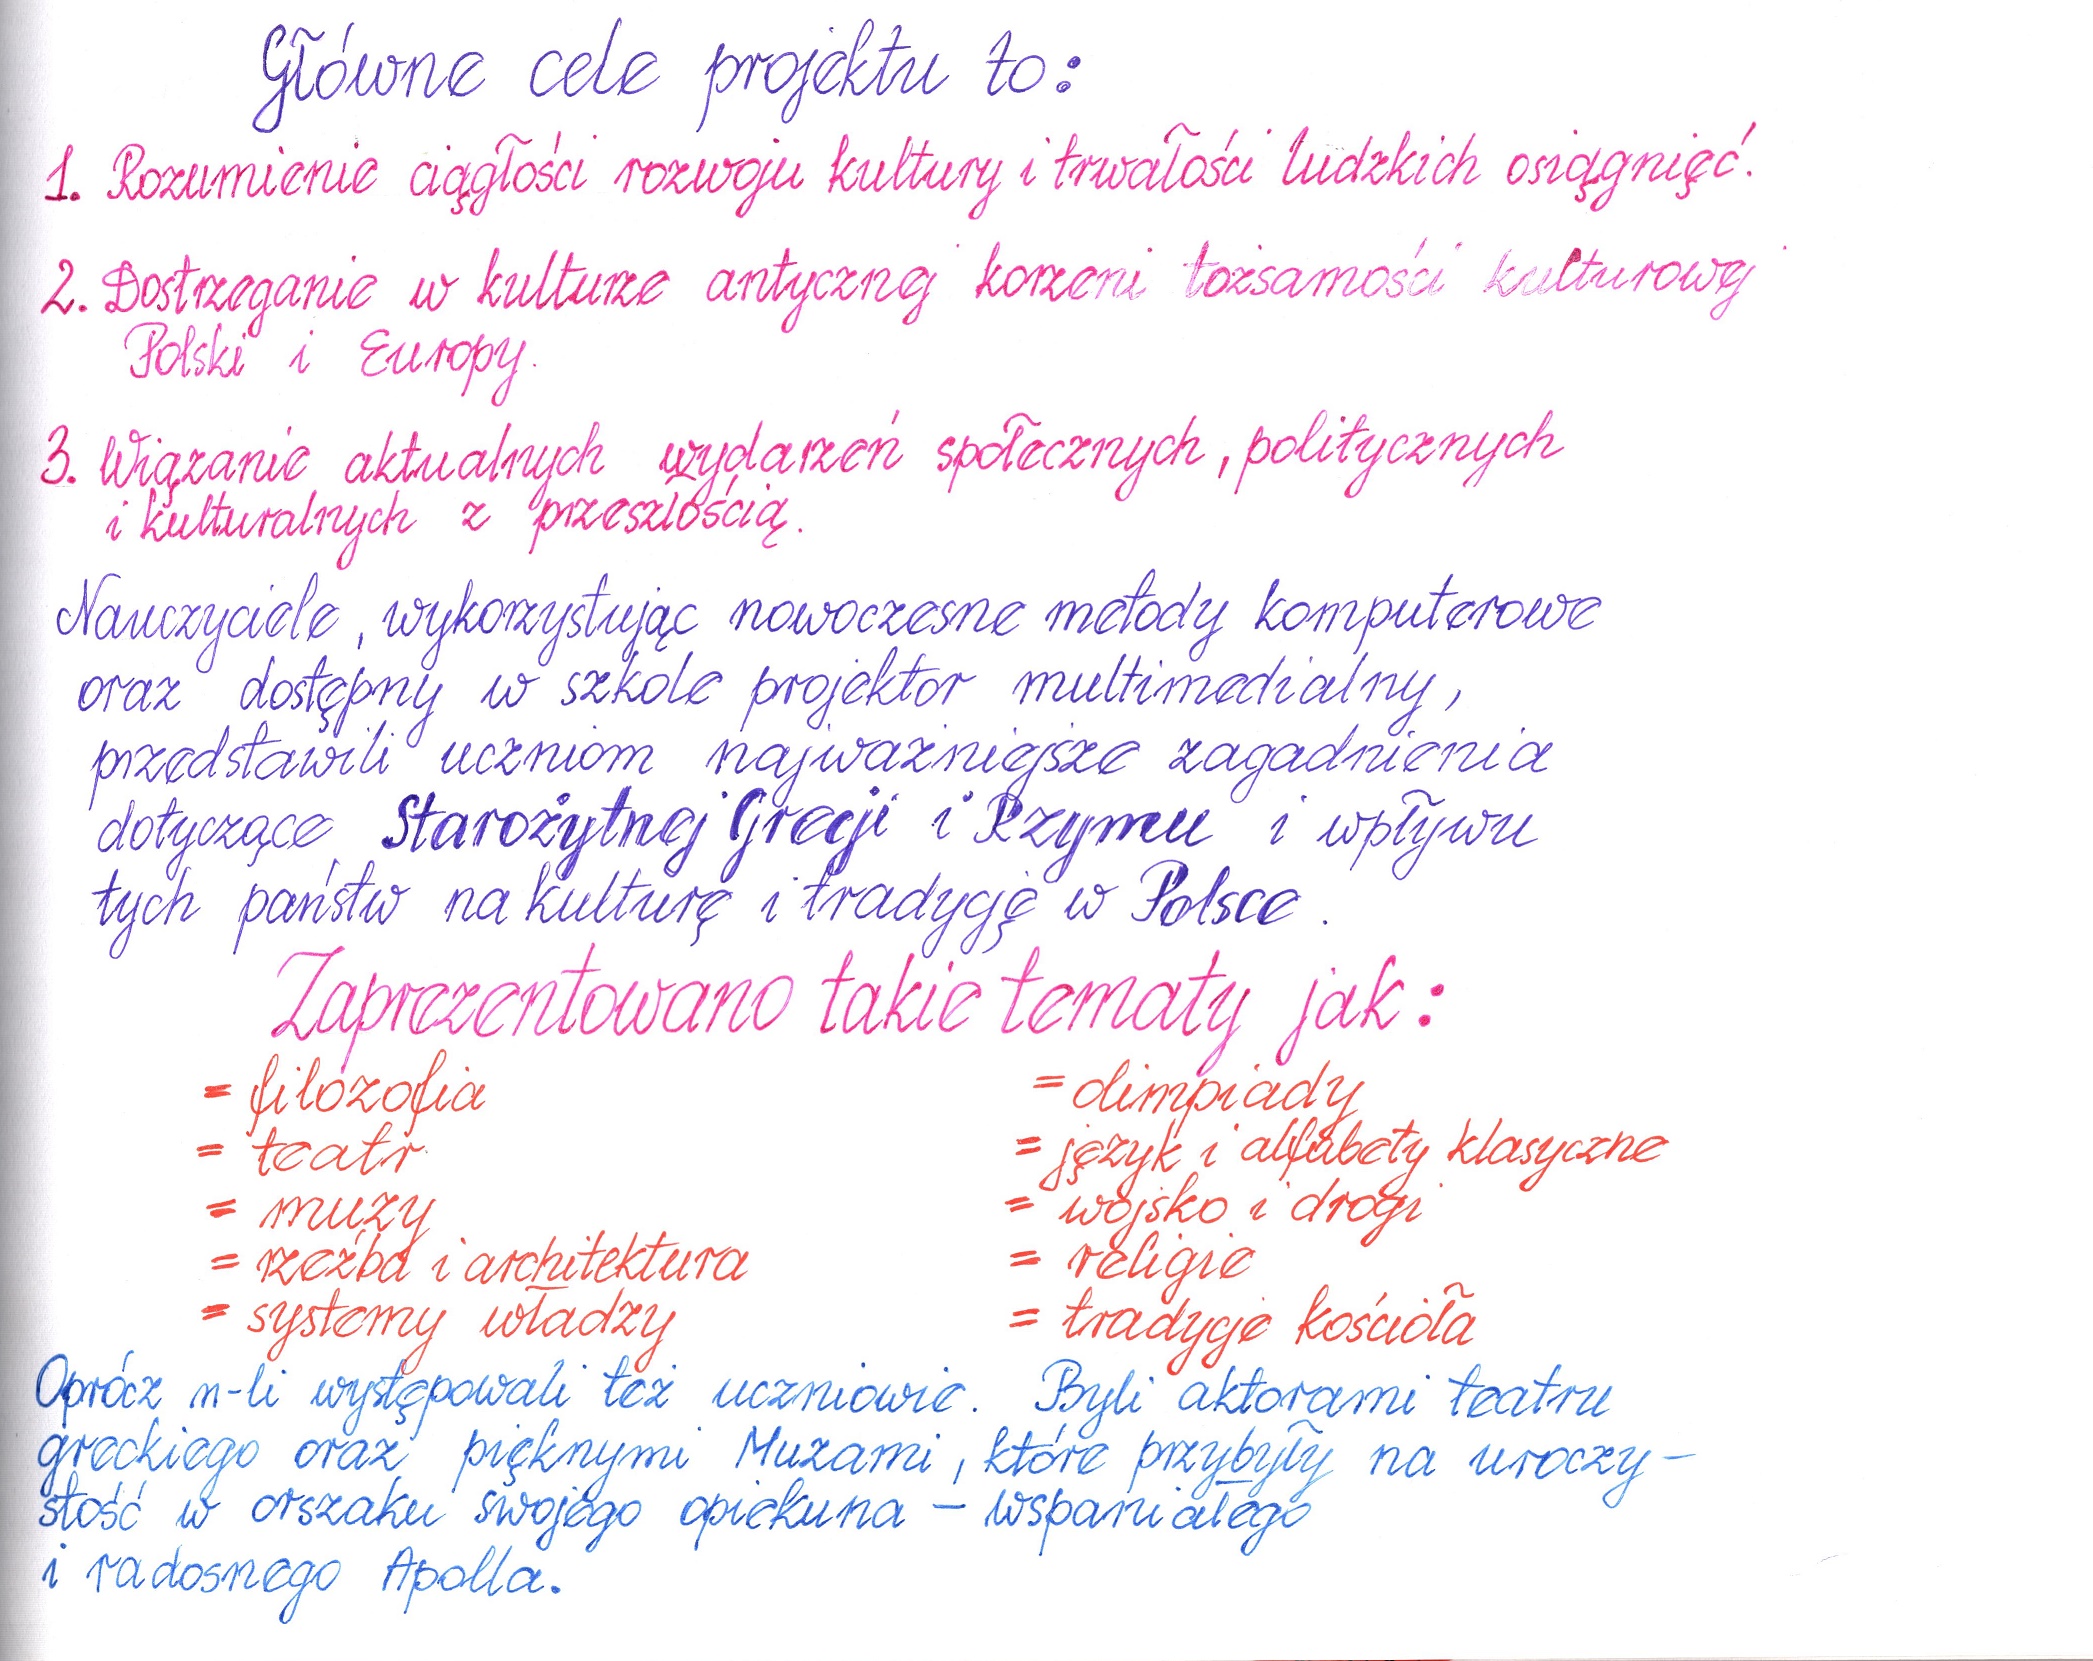 Główne cele projektu to:
1. Rozumienie ciągłości rozwoju kultury i trwałości ludzkich osiągnięć.
2. Dostrzeganie w kulturze antycznej korzeni tożsamości kulturowej
Polski i Europy.
3. Wiązanie aktualnych wydarzeń społecznych, politycznych
i kulturalnych z przeszłością.
Nauczyciele, wykorzystując nowoczesne metody komputerowe
oraz dostępny w szkole projektor multimedialny,
przedstawili uczniom najważniejsze zagadnienia
dotyczące Starożytnej Grecji i Rzymu i wpływu
tych państw na kulturę i tradycję w Polsce.
Zaprezentowano takie tematy jak:
= filozofia
= teatr
= muzy
= rzeźba i architektura
= systemy władzy
= olimpiady
= język i alfabety klasyczne
= wojsko i drogi
= religie
= tradycje kościoła
Oprócz n-li występowali też uczniowie. Byli aktorami teatru
greckiego oraz pięknymi Muzami, które przybyły na uroczy-
stość w orszaku swojego opiekuna - wspaniałego
i radosnego Apolla.